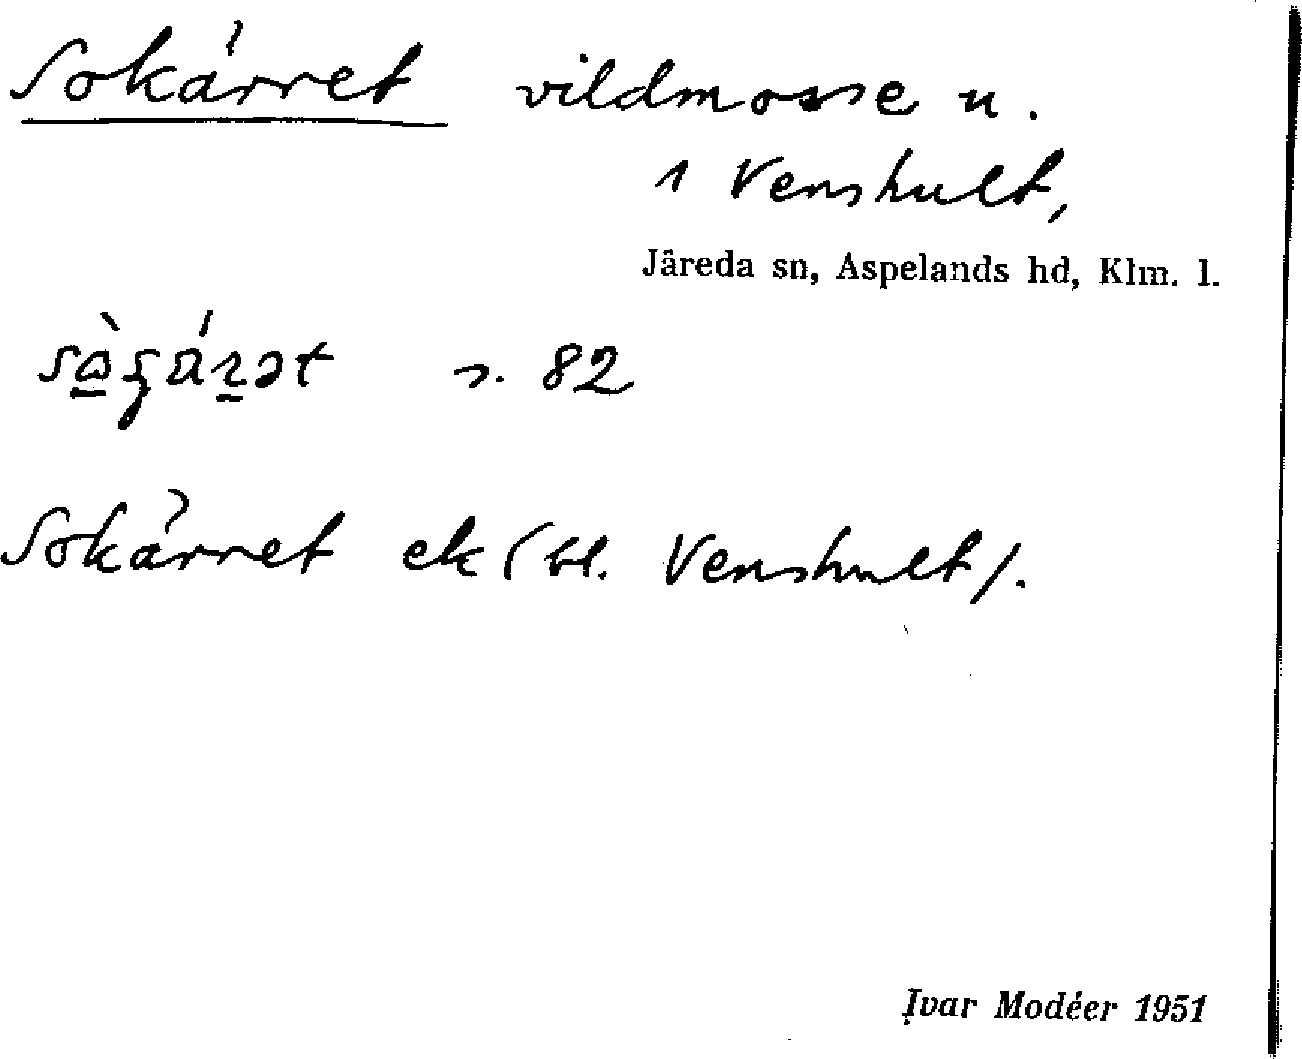 Sokärret vildmosse u.
1 Venshult,
Järeda sn, Aspelands hd, Klm. l.
s. 82
Sokärret ek (bl. Venshult).
Ivar Modéer 1951